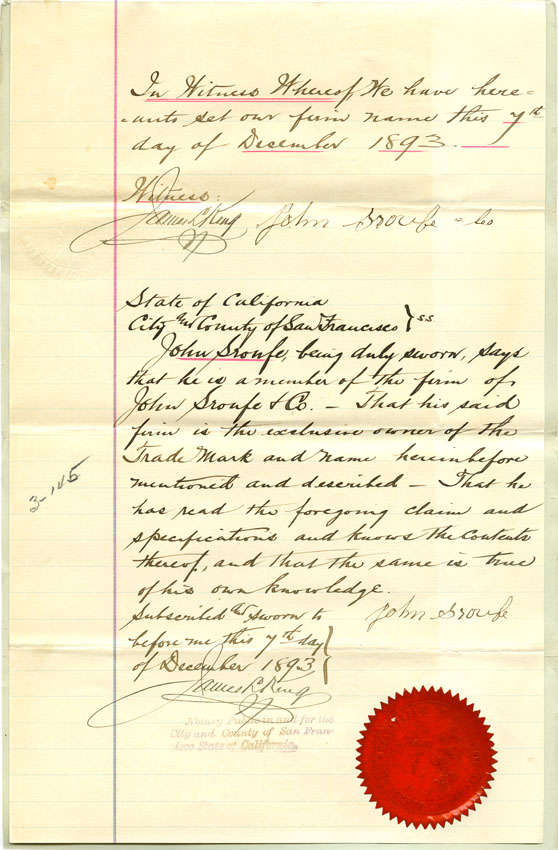 In Witness Whereof, We have here=
=unto set our firm name this 7th
day of December 1893.
Witness:
James L. King John Sroufe & Co
State of California
City and County of San Francisco } ss
John Sroufe, being duly sworn, says
that he is a member of the firm of
John Sroufe & Co. — That his said
firm is the exclusive owner of the
Trade Mark and name hereinbefore
mentioned and described — That he
has read the foregoing claim and
specifications and knows the contents
thereof, and that the same is true
of his own knowledge.
3-145
Subscribed and sworn to John Sroufe
before me this 7th day
of December 1893
James L. King
Notary Public in and for the
City and County of San Fran-
cisco State of California.